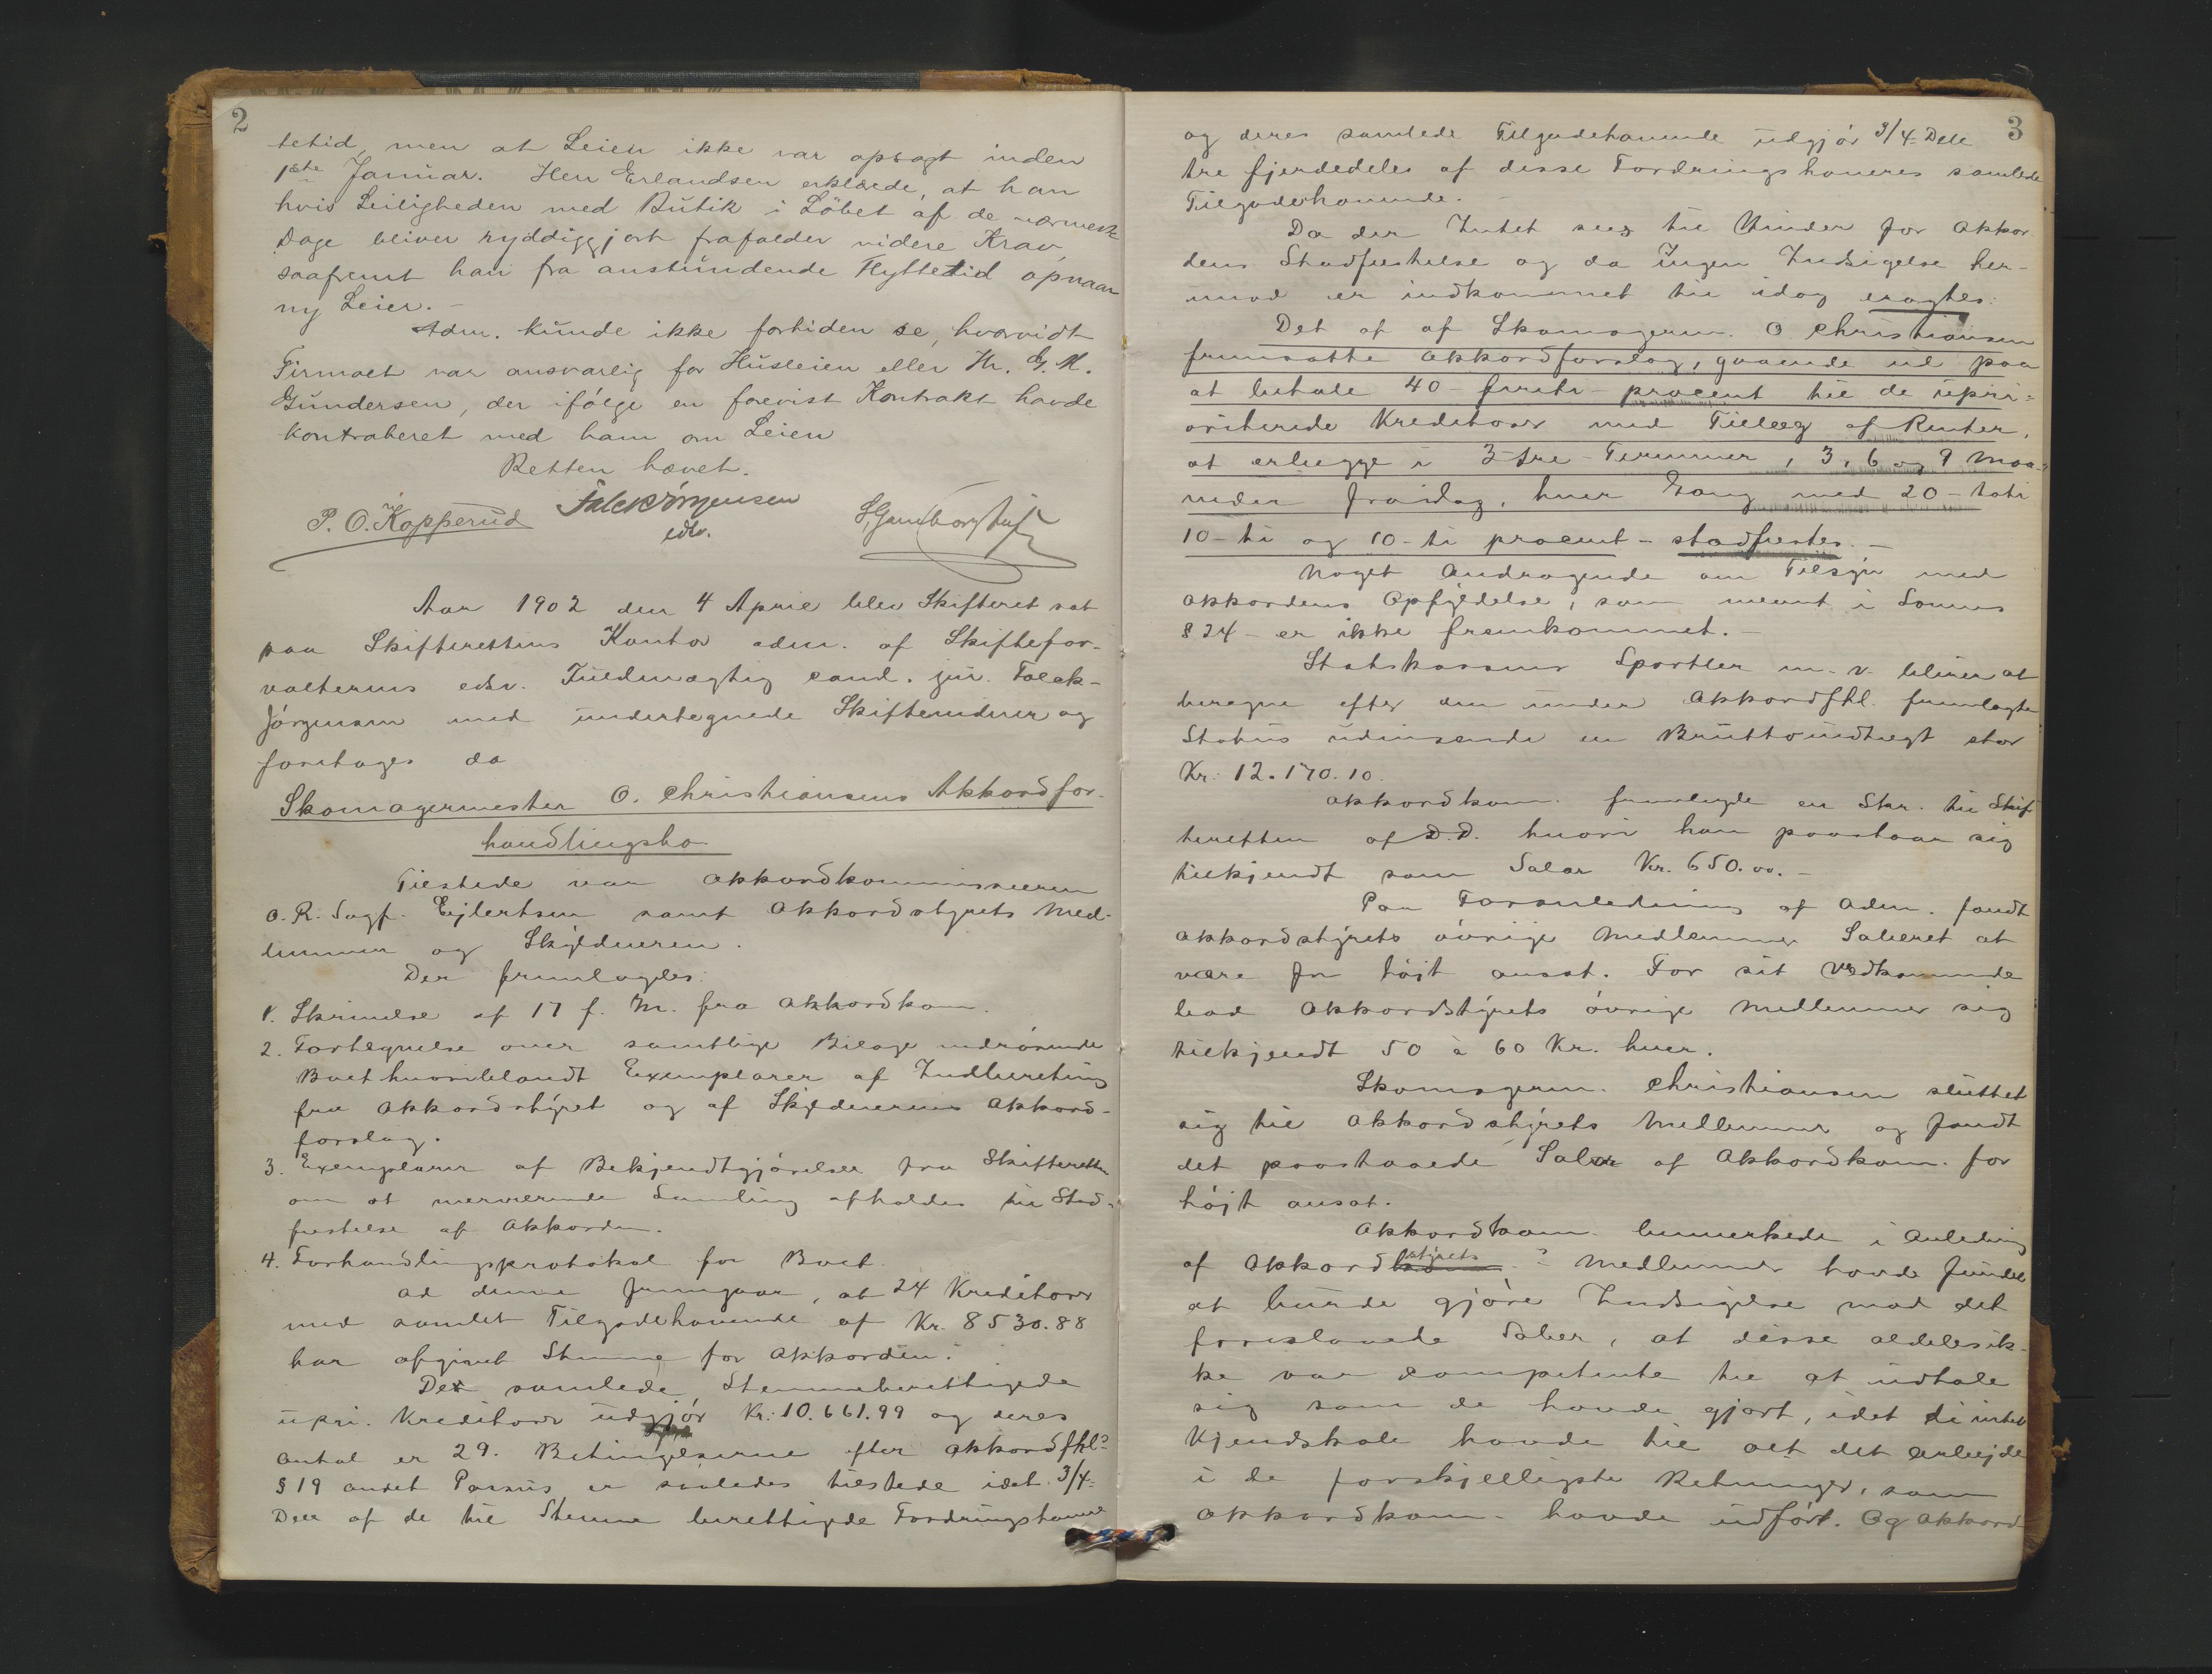 2
tetid, men at Leien ikke var opsagt inden
1ste Januar. Herr Erlandsen erklærede, at han
hvis Leiligheden med Butik i Löbet af de nærmeste
Dage bliver ryddiggjort frafalder videre Krav,
saafremt han fra anstundende Flyttetid opnaar
ny Leier. –
Adm. kunde ikke fortiden se, hvorvidt
Firmaet var ansvarlig for Husleien eller Hr. G. M.
Gundersen, der ifólge en forevist Kontrakt havde
kontraheret med ham om Leien
Retten hævet.
P. O. Kopperud Falck Jörgensen
edv.
Aar 1902 den 4 April blev Skifteret sat
paa Skifterettens Kontor adm. af Skiftefor-
valterens edsv. Fuldmægtig cand. jur. Falck-
Jórgensen med undertegnede Skiftevidner og
foretages da
Skomagermester O. Christiansens Akkordfor-
handlingsbo
Tilstede var Akkordkommissæren
O. R. Sagf. Ejlertsen samt Akkordstyrets Med-
lemmer og Skyldneren.
Der fremlagdes:
1. Skrivelse af 17 f. M. fra Akkordkom.
2. Fortegnelse over samtlige Bilage vedrórende
Boet hvoriblandt Exemplarer af Indberetning
fra Akkordstyret og af Skyldnerens Akkord-
forslag.
3. Exemplarer af Bekjendtgjórelse fra Skifteretten
om at nærværende Samling afholdes til Stad-
fæstelse af Akkorden.
4. Forhandlingsprotokol for Boet.
ad denne fremgaar, at 24 Kreditorer
med samlet Tilgodehavende af Kr. 8530.88
har afgivet Stemme for Akkorden.
Det samlede, Stemmeberettigede
upri. Kreditorer udgjór Kr. 10.661.99 og deres
antal er 29. Betingelserne efter Akkordfhl.s
§ 19 andet Passus er saaledes tilstede idet 3/4-
Dele af de til Stemme berettigede Fordringshavere
3
og deres samlede Tilgodehavende udgjór 3/4-Dele
tre fjerdedeles af disse Fordringshaveres samlede
Tilgodehavende. –
Da der Intet sees til Hinder for Akkor-
dens Stadfæstelse og da Ingen Indsigelse her-
imod er indkommet til idag eragtes:
Det af af Skomagerm. O Christiansen
fremsatte Akkordforslag, gaaende ud paa
at betale 40 – firti – procent til de upri-
oriterede Kreditorer med Tillæg af Renter,
at erlægge i 3 – tre – Terminer, 3, 6 og 9 Maa-
neder fra idag, hver Gang med 20 – toti
10 – ti og 10 – ti procent – stadfæstes. –
Noget Andragende om Tilsyn med
Akkordens Opfyldelse, som nævnt i Lovens
§ 24 – er ikke fremkommet. –
Statskassens Sportler m. v. bliver at
beregne efter den under Akkordfhl. fremlagte
Status udvisende en Bruttoindtægt stor
Kr. 12.170.10.
Akkordkom. fremlagde en Skr. til Skif-
teretten af D.D. hvori han paastaar sig
tilkjendt som Salær Kr. 650.00. –
Paa Foranledning af Adm. fandt
Akkordstyrets óvrige Medlemmer Salæret at
være for hójt ansat. For sit Vedkommende
bad Akkordstyrets óvrige Medlemmer sig
tilkjendt 50 à 60 Kr. hver.
Skomagerm. Christiansen sluttet
sig til Akkordstyrets Medlemmer og fandt
det paastaaede Salær af Akkordkom. for
hójt ansat.
Akkordkom. bemærkede i Anledning
af Akkordstyrets Medlemmer havde fundet
at burde gjóre Indsigelse mod det
foreslaaede Salær, at disse aldeles ik-
ke var competente til at udtale
sig som de havde gjort, idet de intet
Kjendskab havde til alt det Arbejde
i de forskjelligste Retninger, som
Akkordkom. havde udfórt. Og Akkord-